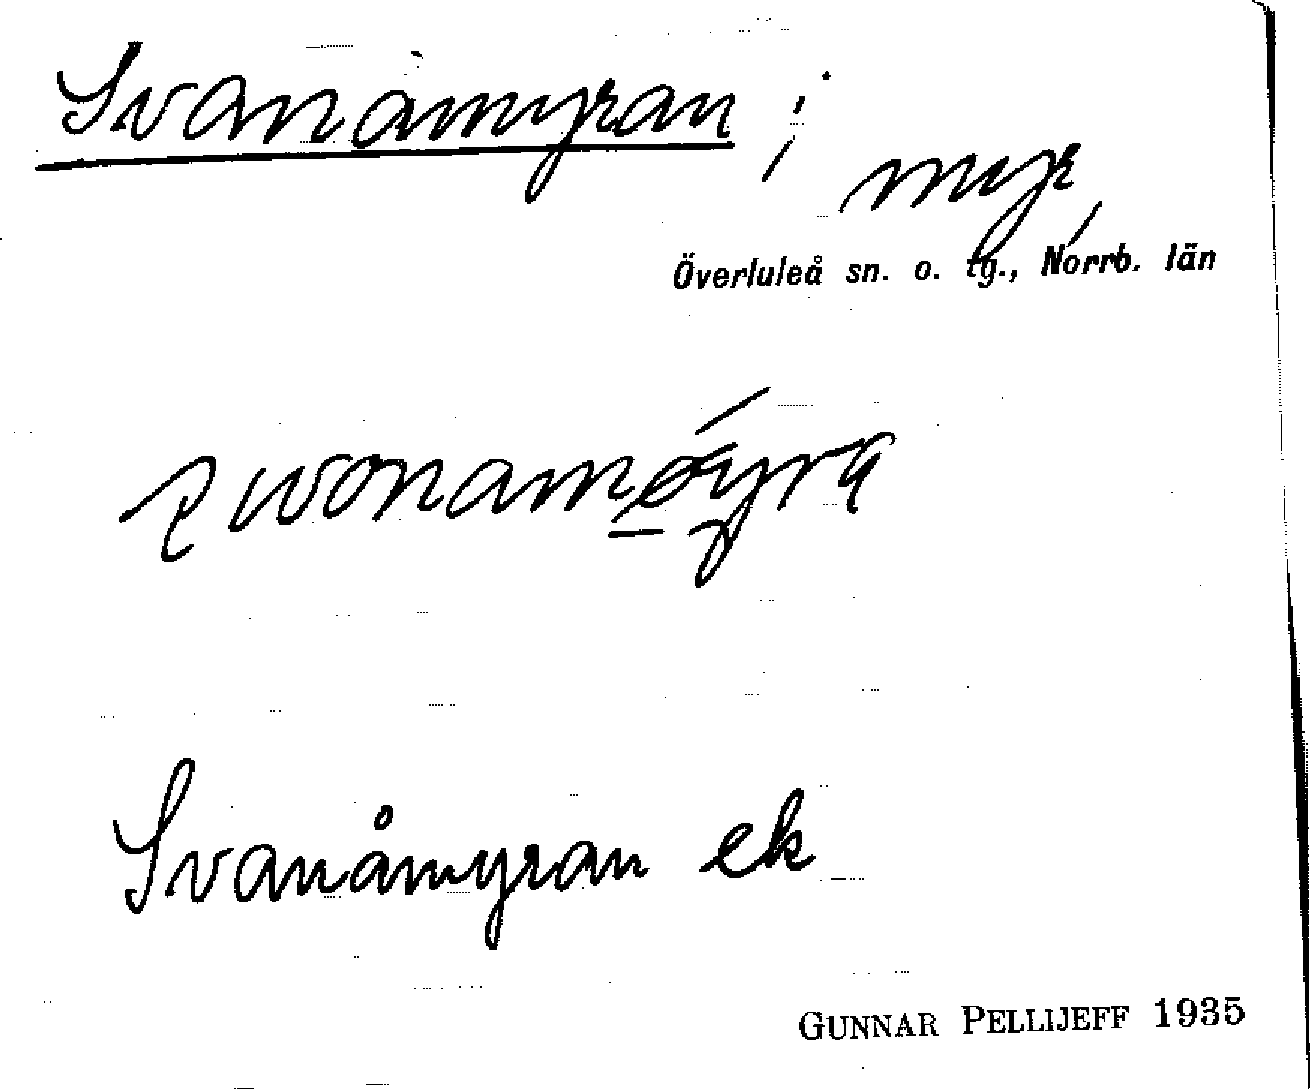 Svanåmyran ;
myr,
Överluleå sn. o. tg., Norrb. län
Svanåmyran ek
GUNNAR PELLIJEFF 1935